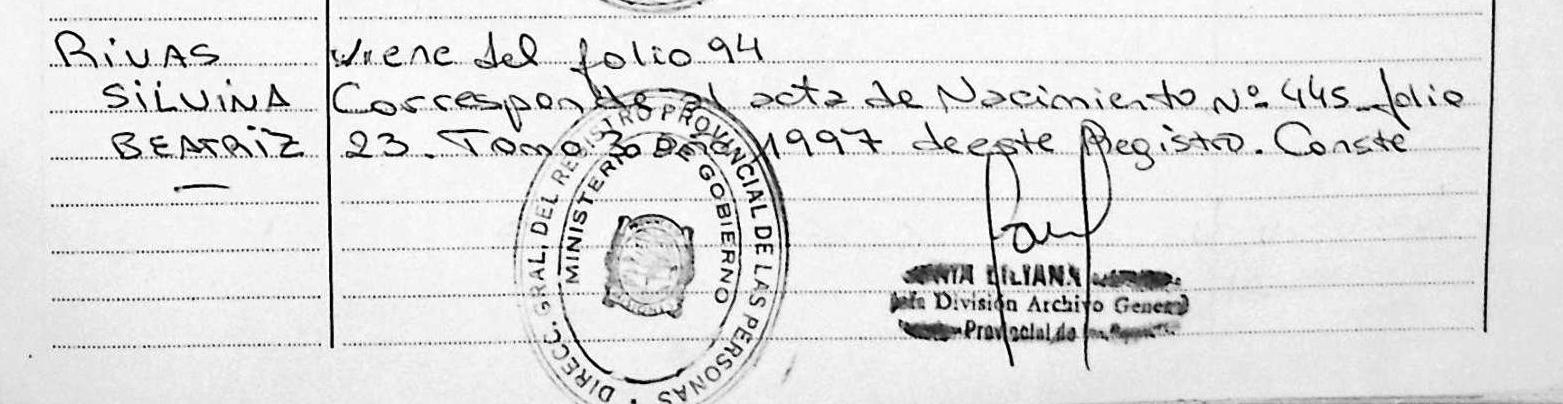 RIVAS
SILVINA
BEATRIZ
Viene del folio 94
Corresponde al acta de Nacimiento Nº 445 folio
23. Tomo 3 Año 1997 de este Registro. Conste
DIRECC. GRAL. DEL REGISTRO PROVINCIAL DE LAS PERSONAS
MINISTERIO DE GOBIERNO
LILIANA
Jefe División Archivo General
Provincial de